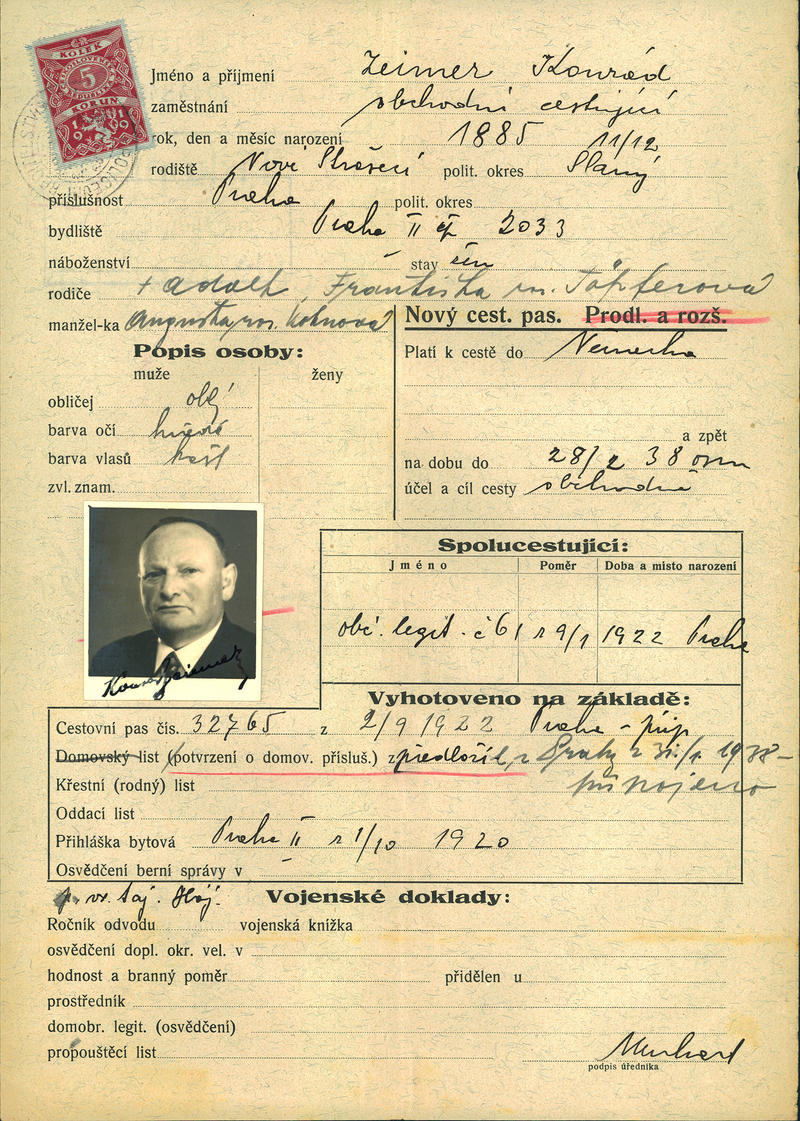 KOLEK
5
KORUN
1919
Jméno a příjmení Zeimer Konrád
zaměstnání obchodní cestující
rok, den a měsíc narození 1885 11/12
rodiště Nové Strašecí polit. okres Slaný
příslušnost Praha polit. okres
bydliště Praha II čp 2033
náboženství stav žen
rodiče + Adolf, Františka roz. Töpferová
manžel-ka Augusta roz. Kohnová
Nový cest. pas. Prodl. a rozš.
Popis osoby:
Platí k cestě do Německa
muže ženy
obličej oblý
barva očí hnědé
barva vlasů kašt
zvl. znam.
a zpět
na dobu do 28/2 38
účel a cíl cesty obchodně
Spolucestující:
Jméno Poměr Doba a místo narození
obč. legit. č 61 z 9/1 1922 Praha
Konrad Zeimer
Vyhotoveno na základě:
Cestovní pas čís. 32765 z 2/9 1922 Praha
Domovský list (potvrzení o domov. přísluš.) z předložil z Prahy z 31./1. 1938 -
připojeno
Křestní (rodný) list
Oddací list
Přihláška bytová Praha II z 1/10 1920
Osvědčení berní správy v
Vojenské doklady:
Ročník odvodu vojenská knížka
osvědčení dopl. okr. vel. v
hodnost a branný poměr přidělen u
prostředník
domobr. legit. (osvědčení)
propouštěcí list
podpis úředníka